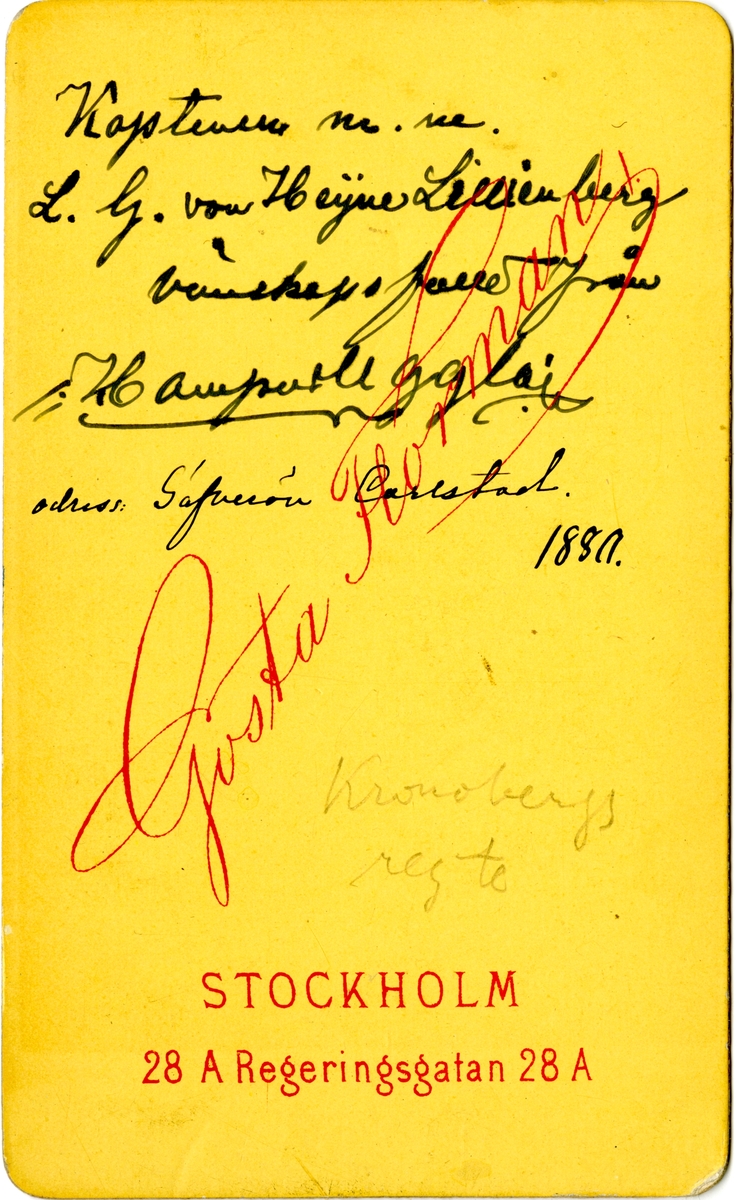 Kapitenen m. m.
L. G. von Heijne Lillienberg
vänskapsfullt från
Hampus Uggla
adress: Säfverön Carlstad.
1880.
Gösta Florman
Kronobergs
regte
STOCKHOLM
28 A Regeringsgatan 28 A